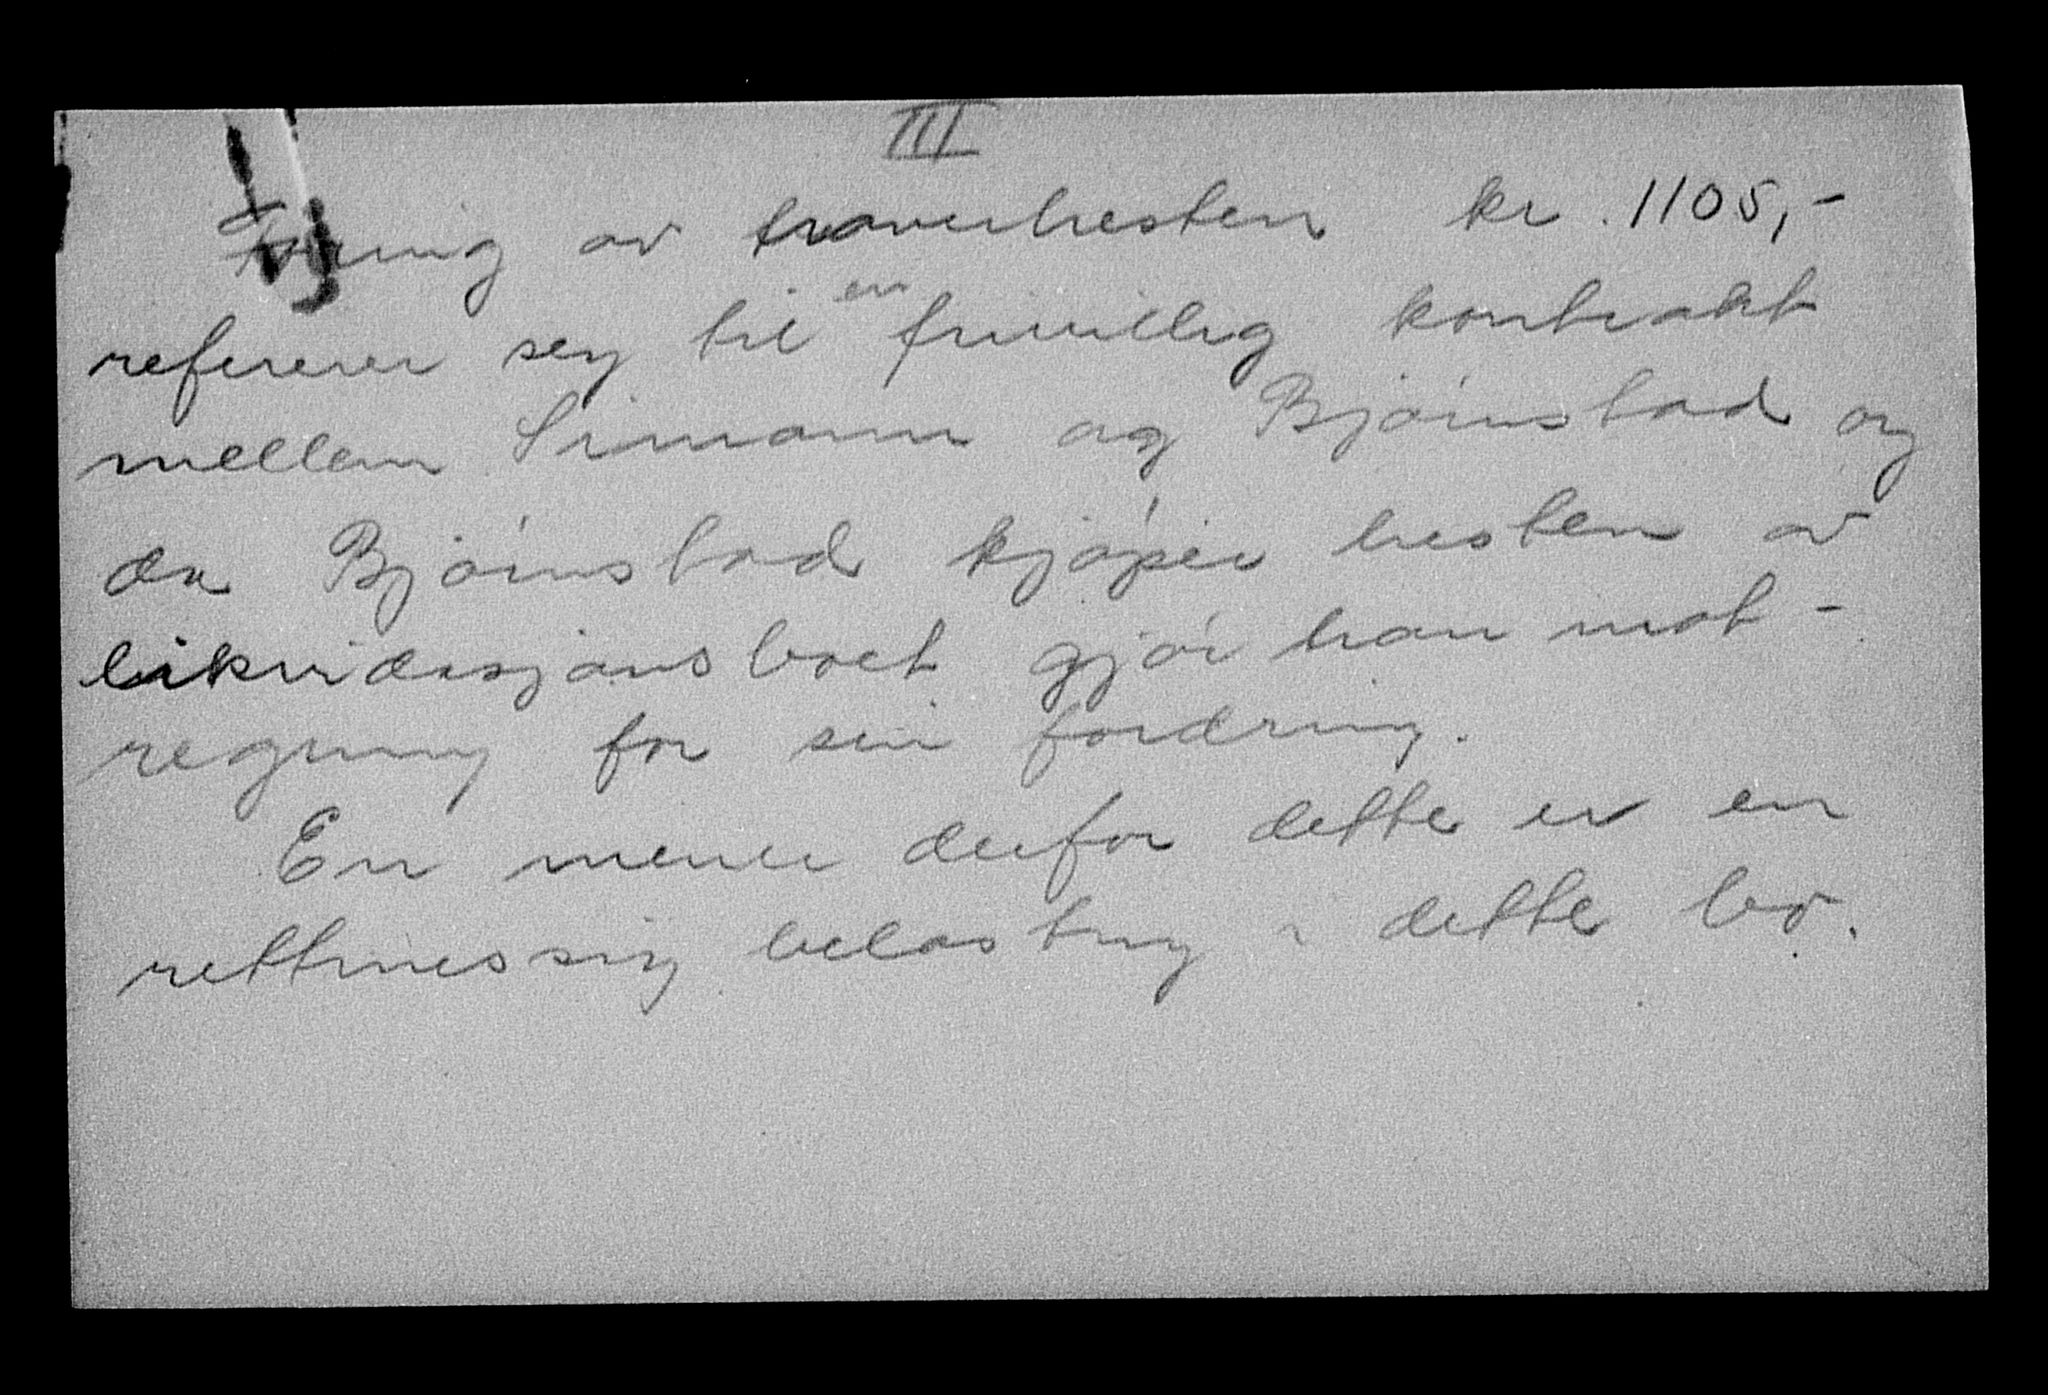 III
Foring av traverhesten kr. 1105,-
refererer seg til en frivillig kontrakt
mellem Simann og Bjørnstad og
da Bjørnstad kjøper hesten av
likvidasjonsboet gjør han mot-
regning for sin fordring.
En mener derfor dette er en
rettmessig belastning i dette bo.